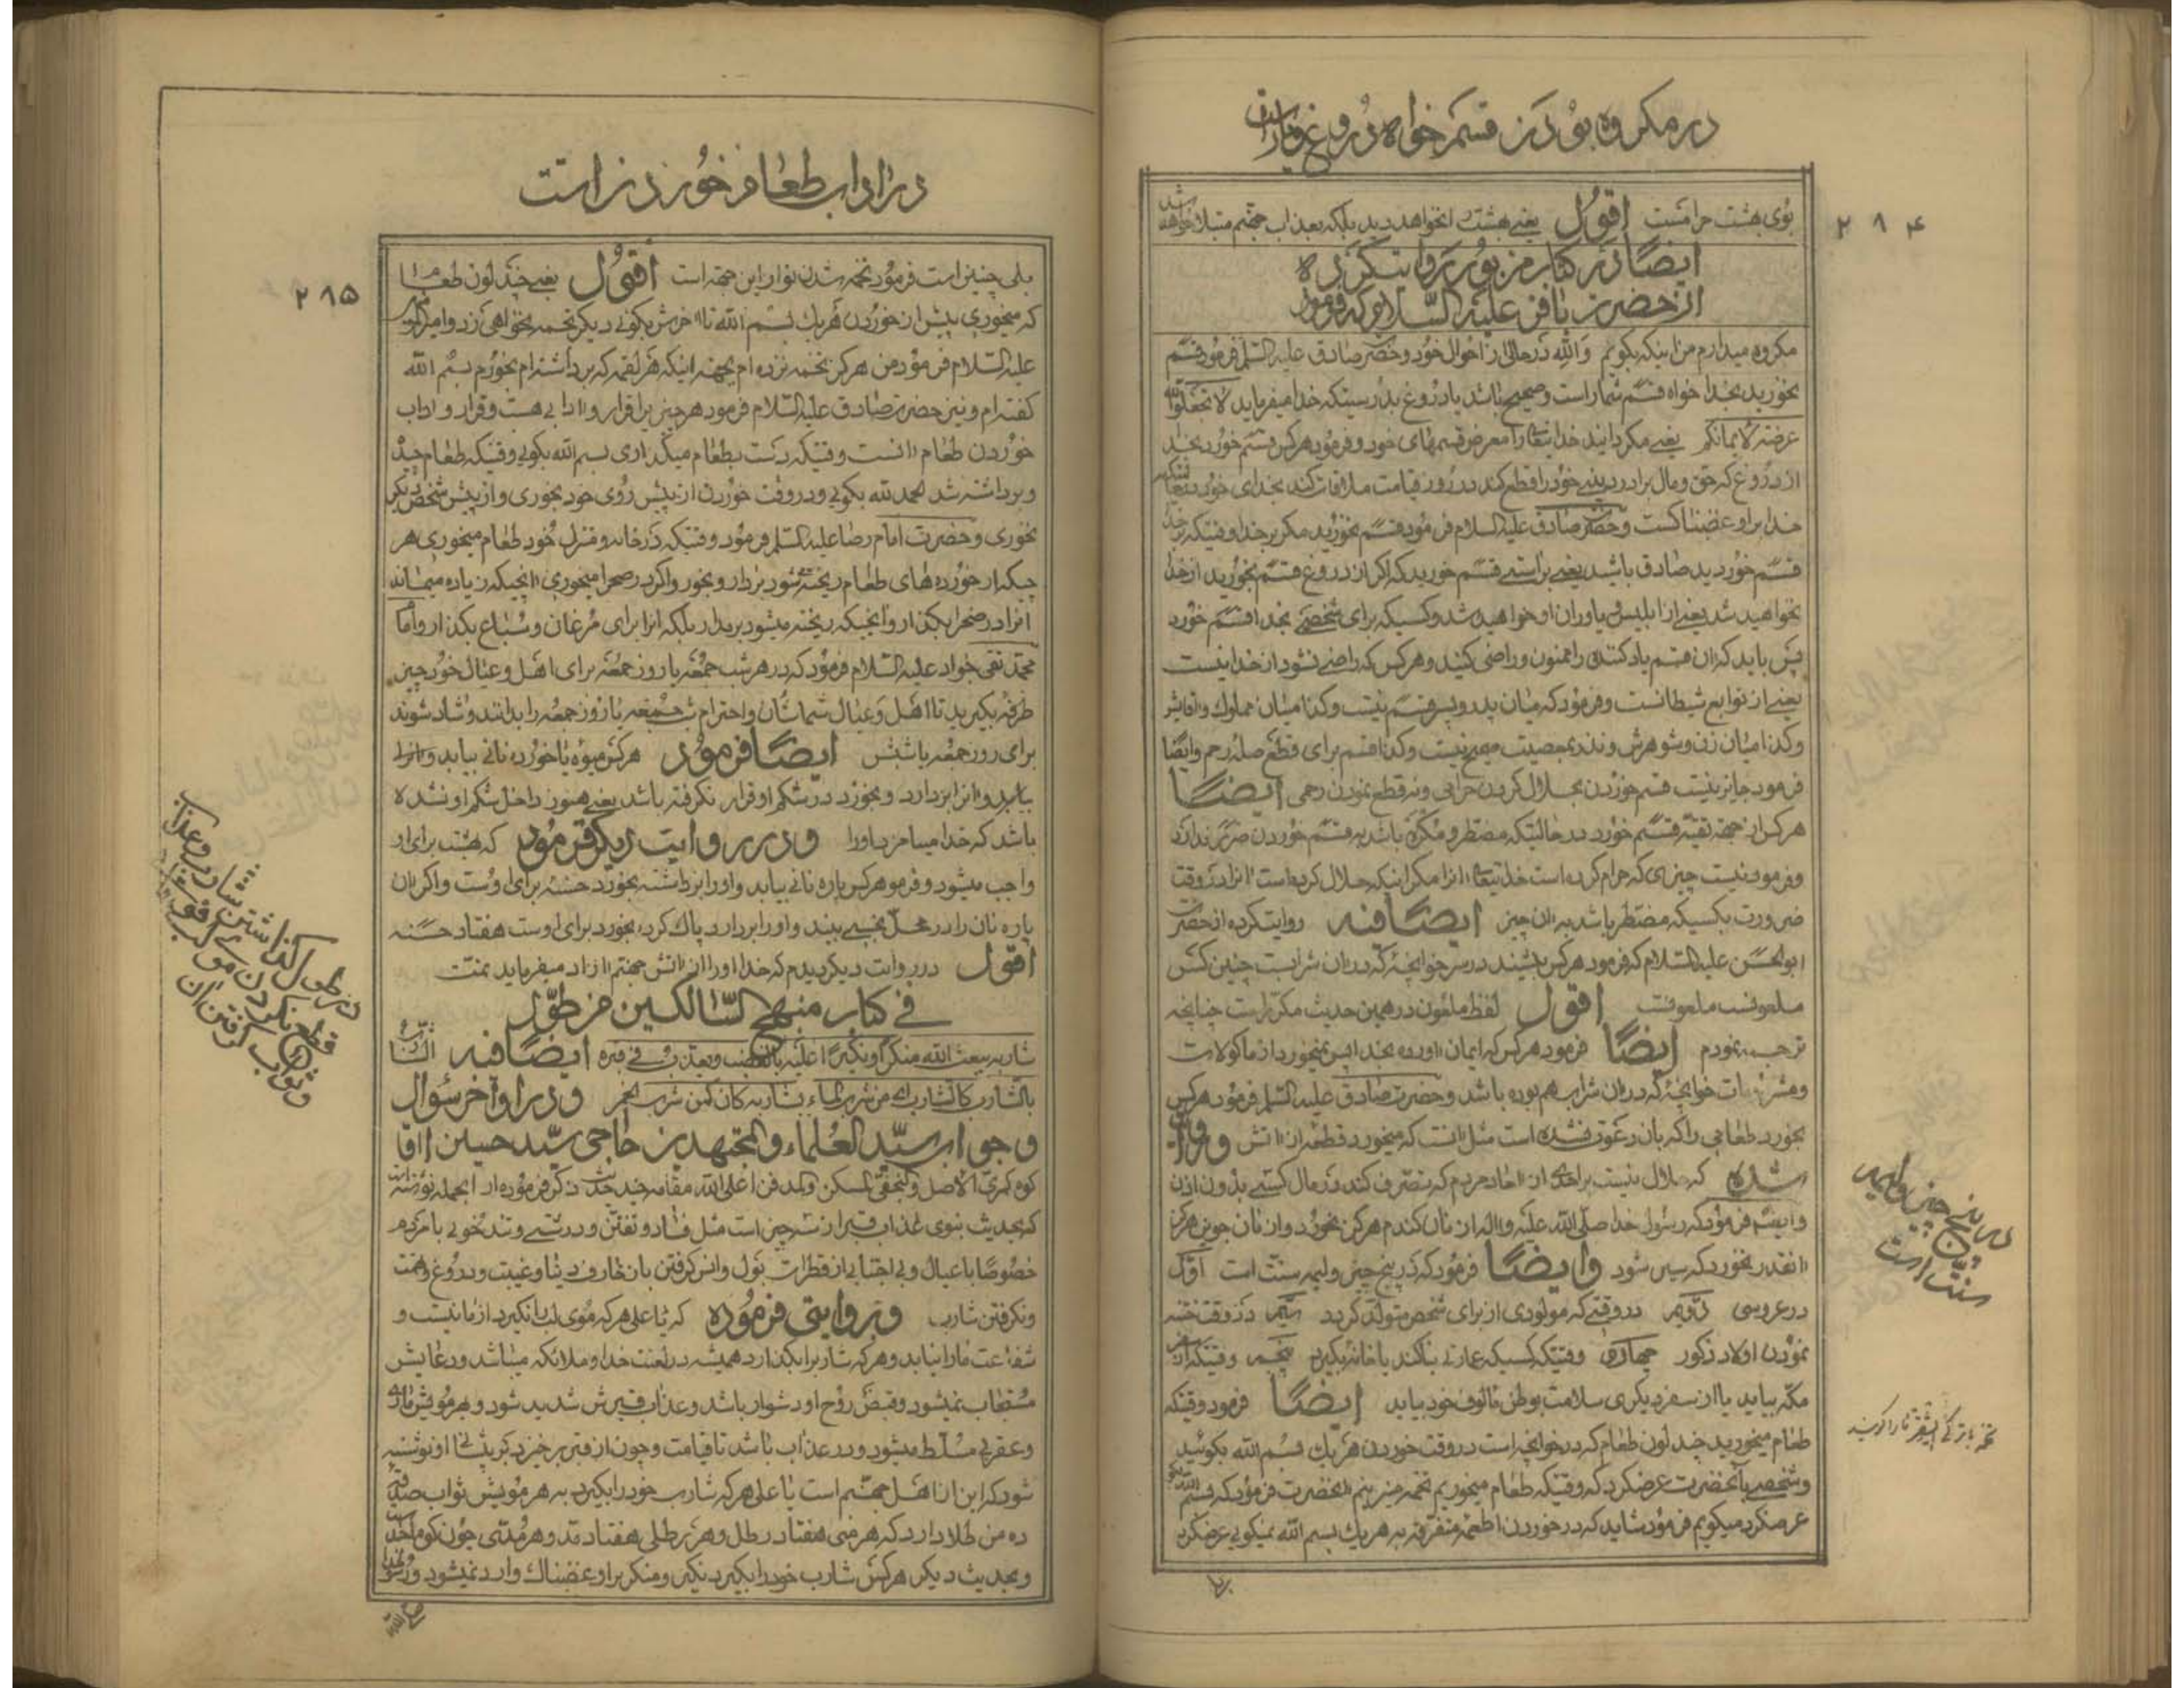 در مکروه بودن قسم خواه دروغ و یا راست
۲۸۴
بوی بهشت حرامست اقول یعنے بهشت نخواهد دید بلکه بعذاب جهنم مبتلا خواهد شد
ایضًا در کتاب مزبور روایت کرده
از حضرت باقر علیه السّلام که فرمود
مکروه میدارم من اینکه بگویم والله در حالی از احوال خود و حضرت صادق علیه السّلم فرمود قسم
نخورید بخدا خواه قسم شما راست و صحیح باشد یا دروغ بدرستیکه خدا میفرماید لا تجعلوا الله
عرضة لایمانکم یعنے مکردانید خدا تیعالی را معرض قسمهای خود و فرمود هرکس قسم خورد بخدا
از دروغ که حق و مال برادر دینے خود را قطع کند در روز قیامت ملاقات کند بخدای خود در حالتیکه
خدا بر او غضبناکست و حضرت صادق علیه السلام فرمود قسم نخورید مکر بر خدا وقتیکه بر خدا
قسم خوردید صادق باشید یعنے براستے قسم خورید که اکر از دروغ قسم بخورید از خدا
نخواهید شد یعنے از ابلیس و یاوران او خواهید شد و کسیکه برای شخصے بخدا قسم خورد
پس باید که ان قسم یاد کننده را ممنون و راضی کنید و هرکس که راضے نشود از خدا نیست
یعنے از توابع شیطانست و فرمود که میان پدر و پسر قسم نیست و کذا میان مملوك و اقاش
و کذا میان زن و شوهرش و نذر بمعصیت صحیح نیست و کذا قسم برای قطع صله رحم و ایضًا
فرمود جایز نیست قسم خوردن بحلال کردن حرامی و نه قطع نمودن رحمی ایضًا
هرکس از جهة تقیّه قسم خورد در حالتیکه مضطر و مکره باشد به قسم خوردن ضرر ندارد
و فرمود نیست چیزی که حرام کرده است خدا تیعالی انرا مکر اینکه حلال کرده است انرا در وقت
ضرورت بکسیکه مضطر باشد به ان چیز ایضًا فیه روایتکرده از حضرت
ابو الحسن علیه السّلام که فرمود هرکس بنشیند در سر خوانچۀ که در ان شرابست چنین کس
ملعونست ملعونست اقول لفظ ملعون در همین حدیث مکرّر است چنانچه
ترجمه نمودم ایضًا فرمود هرکس که ایمان اورده بخدا پس نمیخورد از ماکولات
و مشروبات خوانچۀ که در ان شراب هم بوده باشد و حضرت صادق علیه السّلم فرمود هرکس
بخورد طعامی را که بان دعوت نشده است مثل انست که میخورد قطعه از اتش و وارد
شده که حلال نیست براحدی از احاد مردم که تصرف کند در مال کسے بدون اذن
و ایضًا فرمود که رسول خدا صلّی الله علیه و اله از نان کندم هرکز نخورد و از نان جوین هرکز
انقدر نخورد که سیر شود و ایضًا فرمود که در پنج چیز ولیمه سنّت است اوّل
در عروسی دویم در وقتے که مولودی از برای شخص متولد کردد سیّم در وقت ختنه
نمودن اولاد ذکور چهارم وقتیکه کسیکه عمارتے بنا کند یا خانه بکیرد پنجم وقتیکه از سفر
مکّه بیاید یا از سفر دیکری سلامت بوطن مالوف خود بیاید ایضًا فرمود وقتیکه
طعام میخورید چند لون طعام که در خوانچه است در وقت خوردن هر یك بسم الله بکوئید
و شخصے بانحضرت عرضکرد که وقتیکه طعام میخوریم تخمه میزنیم انحضرت فرمود که بسم الله بکو
عرضکرد میکویم فرمود شاید که در خوردن اطعمۀ متفرقه به هر یك بسم الله نمیکویے عرضکرد
در پنج چیز ولیمه
سنّت است
در اداب طعام خوردن است
۲۸۵
بلی چنین است فرمود تخمه شدن تو از این جهة است اقول یعنے چند لون طعام را
که میخوری پیش از خوردن هر یك بسم الله تا اخرش بکوئے دیکر تخمه نخواهی زد و امیر المؤمنین
علیه السّلام فرمود من هرکز تخمه نزده ام بجهة اینکه هر لقمه که برداشته ام بخورم بسم الله
کفته ام و نیز حضرت صادق علیه السّلام فرمود هر چیز برا قرار و ادابے هست و قرار و اداب
خوردن طعام انست وقتیکه دست بطعام میکذاری بسم الله بکویے وقتیکه طعام خورده
و برداشته شد الحمد لله بکویے و در وقت خوردن از پیش روی خود بخوری و از پیش شخص دیکر
نخوری و حضرت امام رضا علیه السّلم فرمود وقتیکه در خانه و منزل خود طعام میخوری هر
چیکه از خورده های طعام ریخته شود بردار و بخور و اکر در صحرا میخوری انچیکه زیاده میماند
انرا در صحرا بکذار و انچیکه ریخته میشود برمدار بلکه انرا برای مرغان و سباع بکذار و امام
محمّد تقی جواد علیه السّلام فرمود که در هر شب جمعه یا روز جمعه برای اهل و عیال خود چیز
طرفه بکیرید تا اهل و عیال شما شان و احترام شب جمعه یا روز جمعه را بدانند و شاد شوند
برای روز جمعه یا شبش ایضًا فرمود هرکس میوه یا خورده نانے بیابد و انرا
بیابد و انرا بردارد و بخورد در شکم او قرار نکرفته باشد یعنے هنوز داخل شکم او نشده
باشد که خدا میامرزد او را و در روایت دیکر فرمود که بهشت برای او
واجب میشود و فرمود هرکس پاره نانے بیابد و او را برداشته بخورد حسنه برای اوست و اکر ان
پاره نان را در محل نجسے بیند و او را بردارد پاك کرده بخورد برای اوست هفتاد حسنه
اقول در روایت دیکر دیدم که خدا او را از اتش جهنم ازاد میفرماید
فی کتاب منهج السّالکین من طوّل
شاربه یبعث الله منکرًا و نکیرًا علیه بالغضب و یعذب فی قبره ایضًا فیه
کوه کمری الاصل و النجفی المسکن و المدفن اعلی الله مقامه چند حدیث ذکر فرموده از انجمله نوشته است
و در اواخر سؤال
و جواب سیّد العلماء و المجتهدین حاجی سیّد حسین اقا
که بحدیث نبوی عذاب قبر از سه چیز است مثل فساد و تفتین و درشتے و تندخوئے با مردم
خصوصًا با عیال و بے اجتنابے از قطرات بول و انس کرفتن بان زخارف دنیا و غیبت و دروغ و تهمت
و نکرفتن شارب و بروایتی فرموده که یا علی هرکه موی لب را نکیرد از ما نیست و
شفاعت ما را نیابد و هرکه شارب را بکذارد همیشه در لعنت خدا و ملائکه میباشد و دعایش
مستجاب نمیشود و قبض روح او دشوار باشد و عذاب قبرش شدید شود و بهر مویش ماری
و عقربی مسلّط میشود و در عذاب باشد تا قیامت و چون از قبر برخیزد بر پیشانے او نوشته
شود که این از اهل جهنّم است یا علی هرکه شارب خود را بکیرد به هر مویش ثواب صدقۀ
ده من طلا دارد که هر منی هفتاد رطل و هر رطلی هفتاد مد و هر مدّی چون کوه احد است
و بحدیث دیکر هرکس شارب خود را بکیرد نکیر و منکر بر او غضبناك وارد نمیشود
در طول کذاشتن شارب و عذاب
قطع نکردن موی لب فوق
و ثواب کرفتن ان